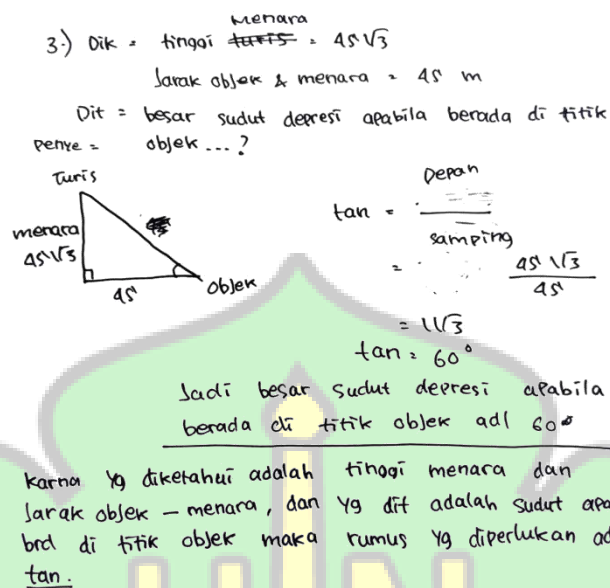 3.) Dik = tinggi turis Menara = 45√3
Jarak objek & menara = 45 m
Dit = besar sudut depresi apabila berada di titik
objek ...?
Penye =
Turis
menara
45√3
45
Objek
tan = Depan
samping
= 45√3
45
= 1√3
tan = 60°
Jadi besar sudut depresi apabila
berada di titik objek adl 60°
karna yg diketahui adalah tinggi menara dan
Jarak objek – menara, dan yg dit adalah sudut apa
brd di titik objek maka rumus yg diperlukan ad
tan.